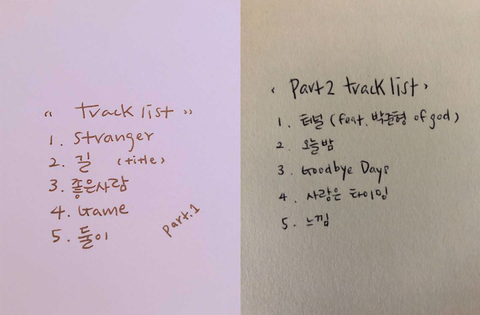 « track list »
1. Stranger
2. 길 (title)
3. 좋은사람
4. Game
5. 둘이
part.1
< Part2 track list >
1. 터널 (feat. 박준형 of god)
2. 오늘밤
3. Goodbye Days
4. 사랑은 타이밍
5. 느낌